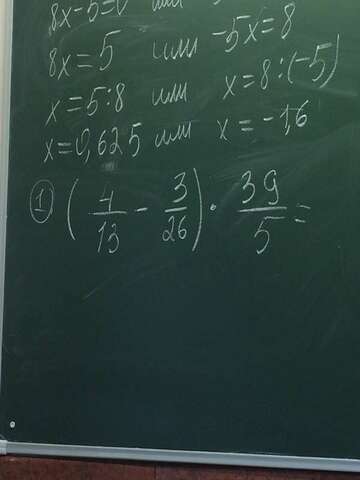 8x-5=0 или
8x=5 или -5x=8
x=5:8 или x=8:(-5)
x=0,625 или x=-1,6
① (4/13 - 3/26) · 39/5 =